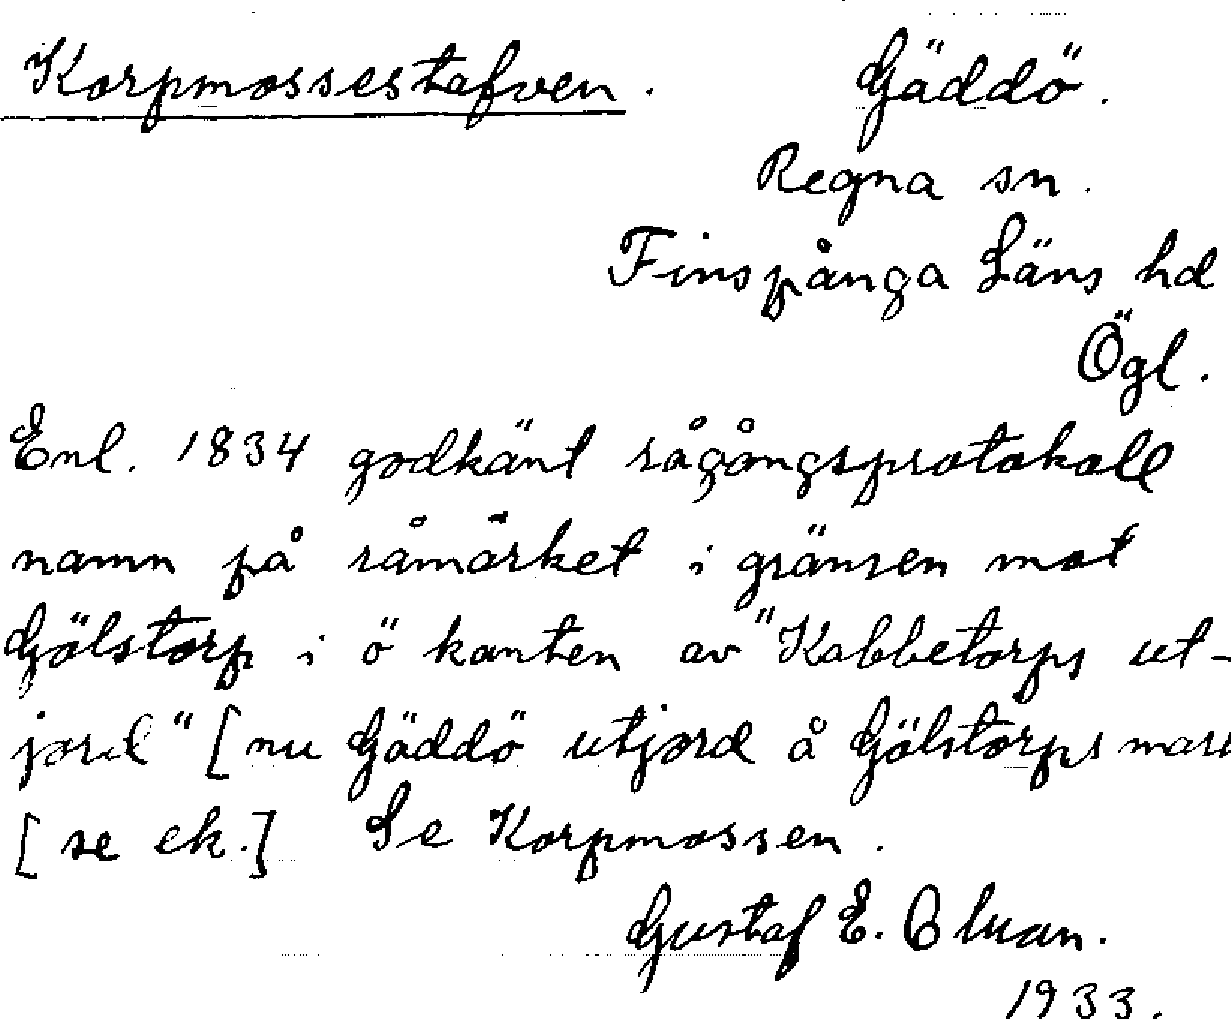 Korpmossestafven. Gäddö.
Regna sn.
Finspånga Läns hd
Ögl.
Enl. 1834 godkänt rågångsprotokoll
namn på råmärket i gränsen mot
Gölstorp i ö kanten av "Kabbetorps ut-
jord" [nu Gäddö utjord å Gölstorps mark
[se ek.] Se Korpmossen.
Gustaf E.
1933.